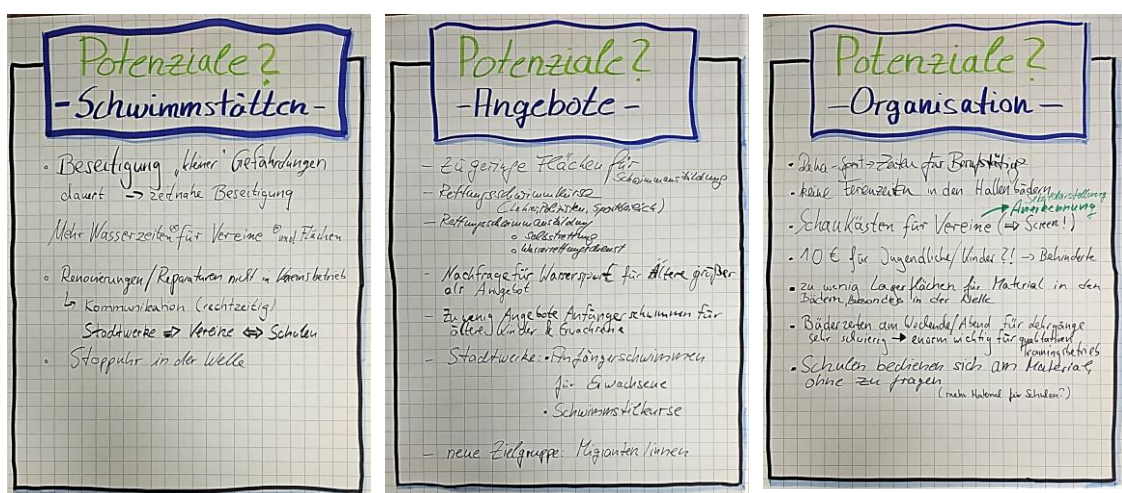 Potenziale?
- Schwimmstätten -
• Beseitigung „kleiner" Gefährdungen
dauert -> zeitnahe Beseitigung
Mehr Wasserzeiten für Vereine und Flächen
• Renovierungen/Reparaturen nicht im Vereinsbetrieb
↳ Kommunikation (rechtzeitig)
Stadtwerke => Vereine <=> Schulen
• Stoppuhr in der Welle
Potenziale?
- Angebote -
- Zu geringe Flächen für
Schwimmausbildung
- Rettungsschwimmkurse
(Lehrer, Polizisten, Sportbereich)
- Rettungsschwimmausbildung
o Selbstrettung
o Wasserrettungsdienst
- Nachfrage für Wassersport für Ältere größer
als Angebot
- Zu wenig Angebote Anfängerschwimmen für
ältere Kinder & Erwachsene
- Stadtwerke: • Anfängerschwimmen
für Erwachsene
• Schwimmstilkurse
- neue Zielgruppe: Migranten/innen
Potenziale?
- Organisation -
• Reha-Sport -> Zeiten für Berufstätige
• keine Ferienzeiten in den Hallenbädern
Selbstdarstellung
Anerkennung
• Schaukästen für Vereine (=> Screen!)
• 10 € für Jugendliche/Kinder?! -> Behinderte
• zu wenig Lagerflächen für Material in den
Bädern, besonders in der Welle
• Bäderzeiten am Wochende/Abend für Lehrgänge
sehr schwierig -> enorm wichtig für qualitativen
Trainingsbetrieb
• Schulen bedienen sich am Material,
ohne zu fragen
(mehr Material für Schulen?)